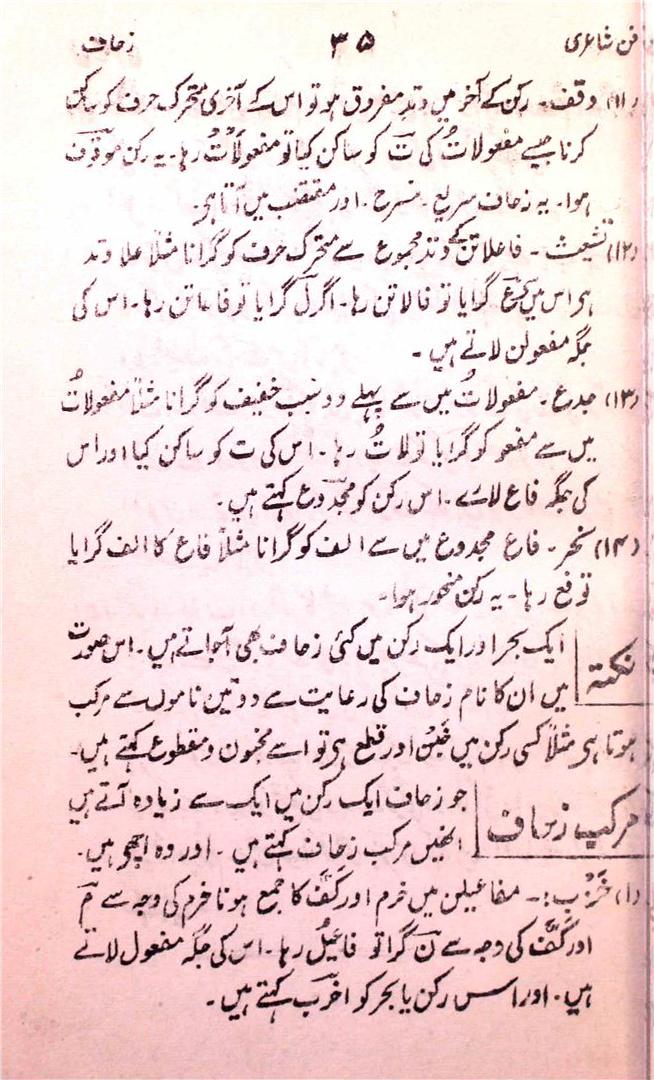 فن شاعری ۳۵ زحاف
(۱۱) وقف۔ رکن کے آخر میں وتدِ مفروق ہو تو اس کے آخری متحرک حرف کو ساکن
کرنا جیسے مفعولاتُ کی تَ کو ساکن کیا تو مفعولاَتْ رہا۔ یہ رکن موقوف
ہوا۔ یہ زحاف سریع۔ منسرح۔ اور مقتضب میں آتا ہی۔
(۱۲) تشعیث۔ فاعلاتن کے وتد مجموع سے متحرک حرف کو گرانا مثلاً علا وتد
ہی اس میں سے عَ گرایا تو فالاتن رہا۔ اگر لَ گرایا تو فاعاتن رہا۔ اس کی
جگہ مفعولن لاتے ہیں۔
(۱۳) جدع۔ مفعولاتُ میں سے پہلے دو سبب خفیف کو گرانا مثلاً مفعولاتُ
میں سے مفعو کو گرایا تو لاتُ رہا۔ اس کی ت کو ساکن کیا اور اس
کی جگہ فاع لائے۔ اس رکن کو مجدوع کہتے ہیں۔
(۱۴) نحر۔ فاع مجدوع میں سے الف کو گرانا مثلاً فاع کا الف گرایا
تو فع رہا۔ یہ رکن منحور ہوا۔
نکتہ ایک بحر اور ایک رکن میں کئی زحاف بھی آجاتے ہیں۔ اس صورت
میں ان کا نام زحاف کی رعایت سے دو تین ناموں سے مرکب
ہوتا ہی مثلاً کسی رکن میں خَبْن اور قطع ہی تو اسے مخبون و مقطوع کہتے ہیں۔
مرکب زحاف جو زحاف ایک رکن میں ایک سے زیادہ آتے ہیں
انھیں مرکب زحاف کہتے ہیں۔ اور وہ
(۱) خَرْب:۔ مفاعیلن میں خرم اور کَفّ کا جمع ہونا خرم کی وجہ سے مَ
اور کَفّ کی وجہ سے نَ گرا تو فاعیلُ رہا۔ اس کی جگہ مفعول لاتے
ہیں۔ اور اس رکن یا بحر کو اخرب کہتے ہیں۔